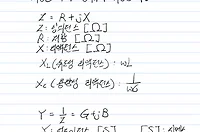 Z = R + jX
Z : 임피던스 [Ω]
R : 저항 [Ω]
X : 리액턴스 [Ω]
X_L (유도성 리액턴스) : ωL
X_C (용량성 리액턴스) : 1/ωC
Y = 1/Z = G + jB